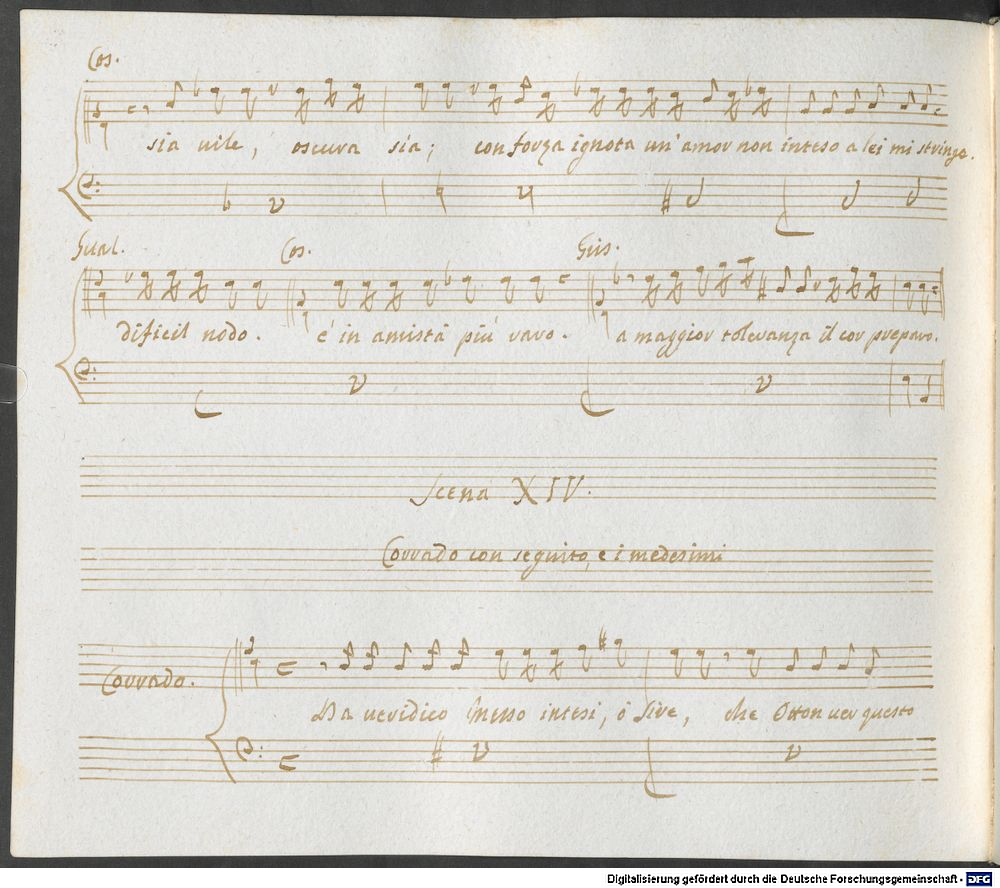 Cos.
sia uile, oscura sia; con forza ignota un' amor non inteso a lei mi stringe.
Gual. Cos. Gris.
dificil nodo. é in amistá piú raro. a maggior toleranza il cor preparo.
Scena XIV.
Corrado con seguito, e i medesimi
Corrado.
Da ueridico messo intesi, ò Sire, che Otton uer questo
Digitalisierung gefördert durch die Deutsche Forschungsgemeinschaft - DFG